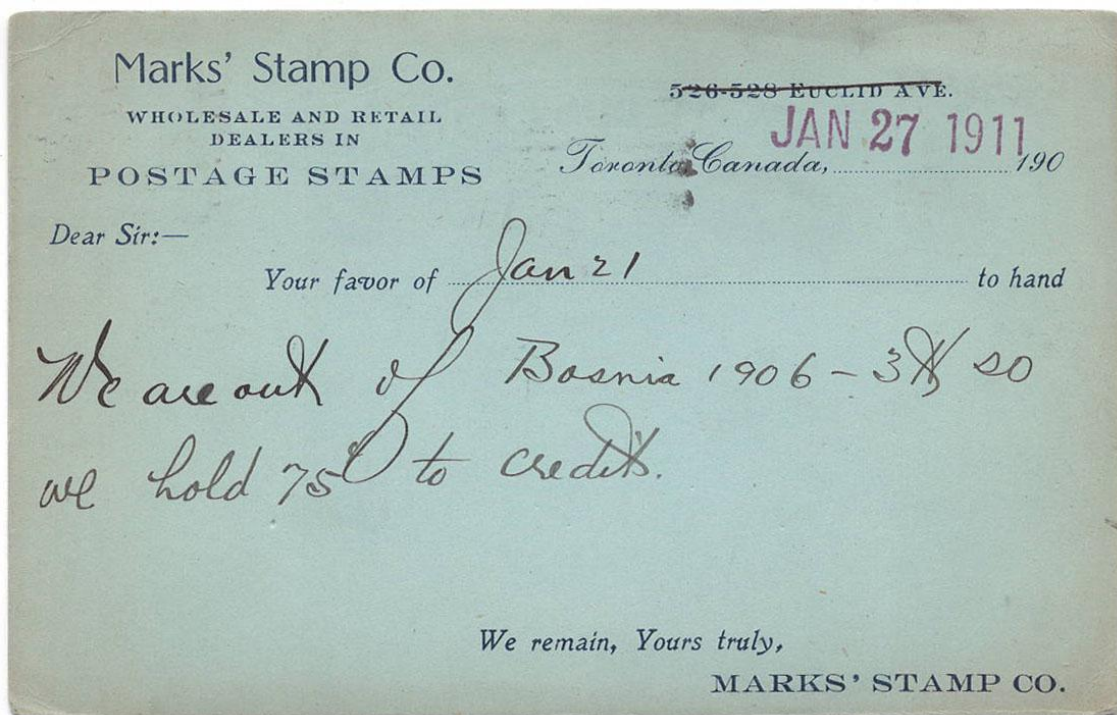 Marks' Stamp Co.
WHOLESALE AND RETAIL
DEALERS IN
POSTAGE STAMPS
526-528 EUCLID AVE.
JAN 27 1911
Toronto, Canada, 190
Dear Sir:—
Your favor of Jan 21 to hand
We are out of Bosnia 1906 - so
we hold 75 to credit.
We remain, Yours truly,
MARKS' STAMP CO.